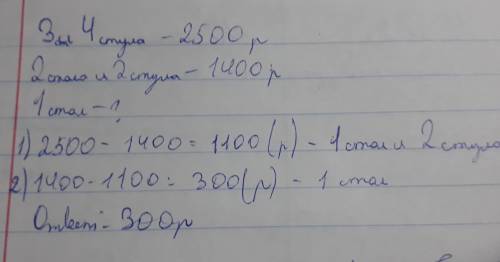 3 4 стула - 2500 р
2 стола и 2 стула - 1400 р
1 стол - ?
1) 2500 - 1400 = 1100 (р) - 1 стол и 2 стула
2) 1400 - 1100 = 300 (р) - 1 стол
Ответ: 300 р